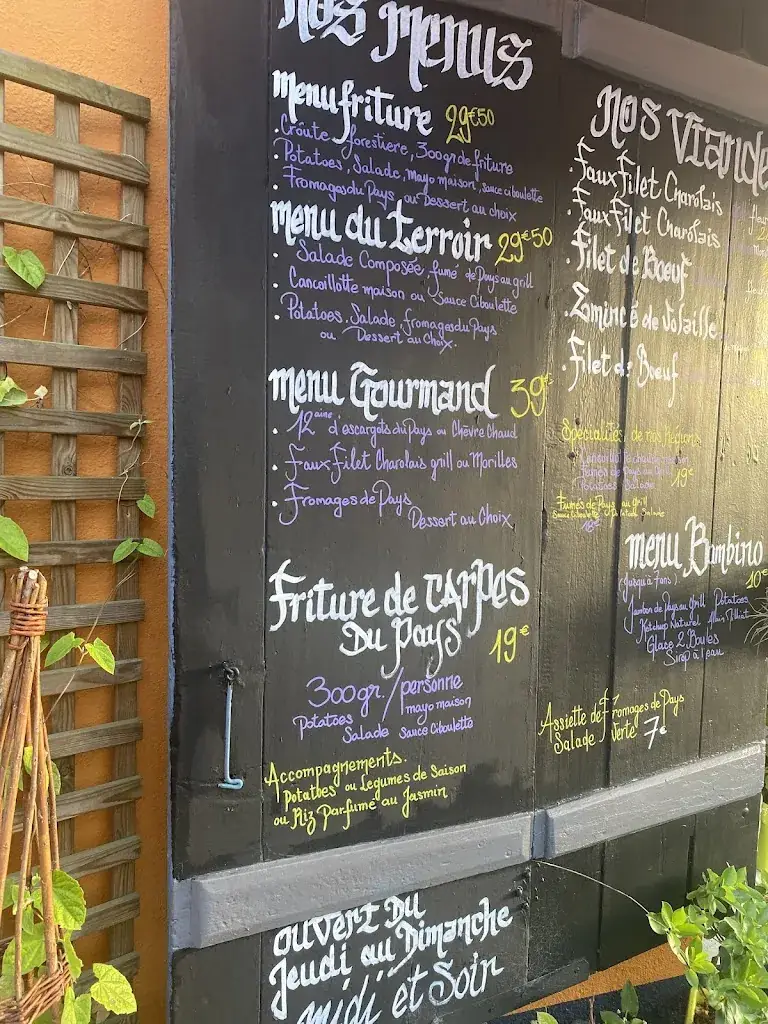 Nos Menus
Menu friture 29€50
. Croute forestiere, 300gr de friture
. Potatoes, Salade, mayo maison, sauce ciboulette
. Fromages du Pays ou Dessert au choix
menu du terroir 29€50
. Salade Composée, fumé de Pays au grill
. Cancoillotte maison ou Sauce Ciboulette
. Potatoes, Salade, fromages du Pays
ou Dessert au Choix.
menu Gourmand 39€
. 12aine d'escargots du Pays ou Chèvre Chaud
. Faux Filet Charolais grill ou Morilles
. Fromages de Pays
Dessert au Choix
Friture de CARPes
Du Pays 19€
300gr./personne
mayo maison
Potatoes
Salade Sauce Ciboulette
Accompagnements.
Potatoes ou Legumes de Saison
ou Riz Parfumé au Jasmin
ouvert Du
Jeudi au Dimanche
midi et Soir
Nos Viande
. Faux Filet Charolais
. Faux Filet Charolais
. Filet de Boeuf
. Emincé de Volaille
. Filet de Boeuf
Spécialités de nos Regions
19€
Potatoes Salade
Fumés de Pays au grill
Sauce Ciboulette Potatoes Salade
18€
menu Bambino
(jusqu'à 7 ans) 10€
Jambon de Pays au Grill Potatoes
Ketchup Naturel
Glace 2 Boules
Sirop à l'eau
Assiette de Fromages de Pays
Salade Verte 7€